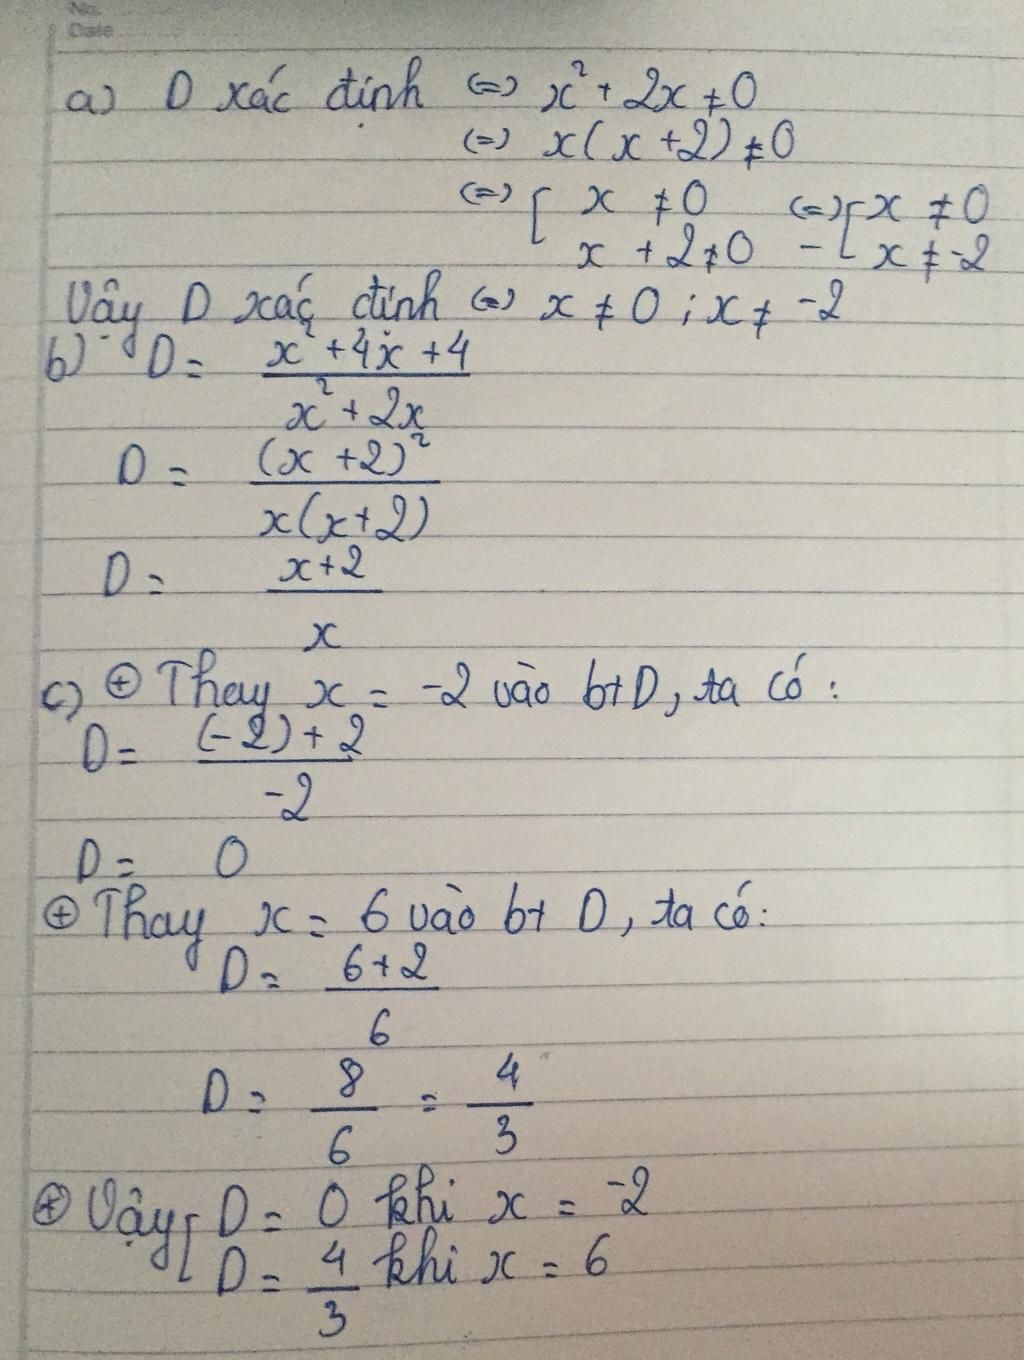 No.
Date
a) D xác định (=) x² + 2x ≠ 0
(=) x(x+2) ≠ 0
(=) [ x ≠ 0 (=) [ x ≠ 0
x + 2 ≠ 0 - x ≠ -2
Vậy D xác định (=) x ≠ 0 ; x ≠ -2
b) D = x² + 4x + 4
x² + 2x
D = (x+2)²
x(x+2)
D = x+2
x
c) ⊕ Thay x = -2 vào bt D, ta có:
D = (-2) + 2
-2
D = 0
⊕ Thay x = 6 vào bt D, ta có:
D = 6+2
6
D = 8 = 4
6 3
⊕ Vậy [ D = 0 khi x = -2
D = 4 khi x = 6
3